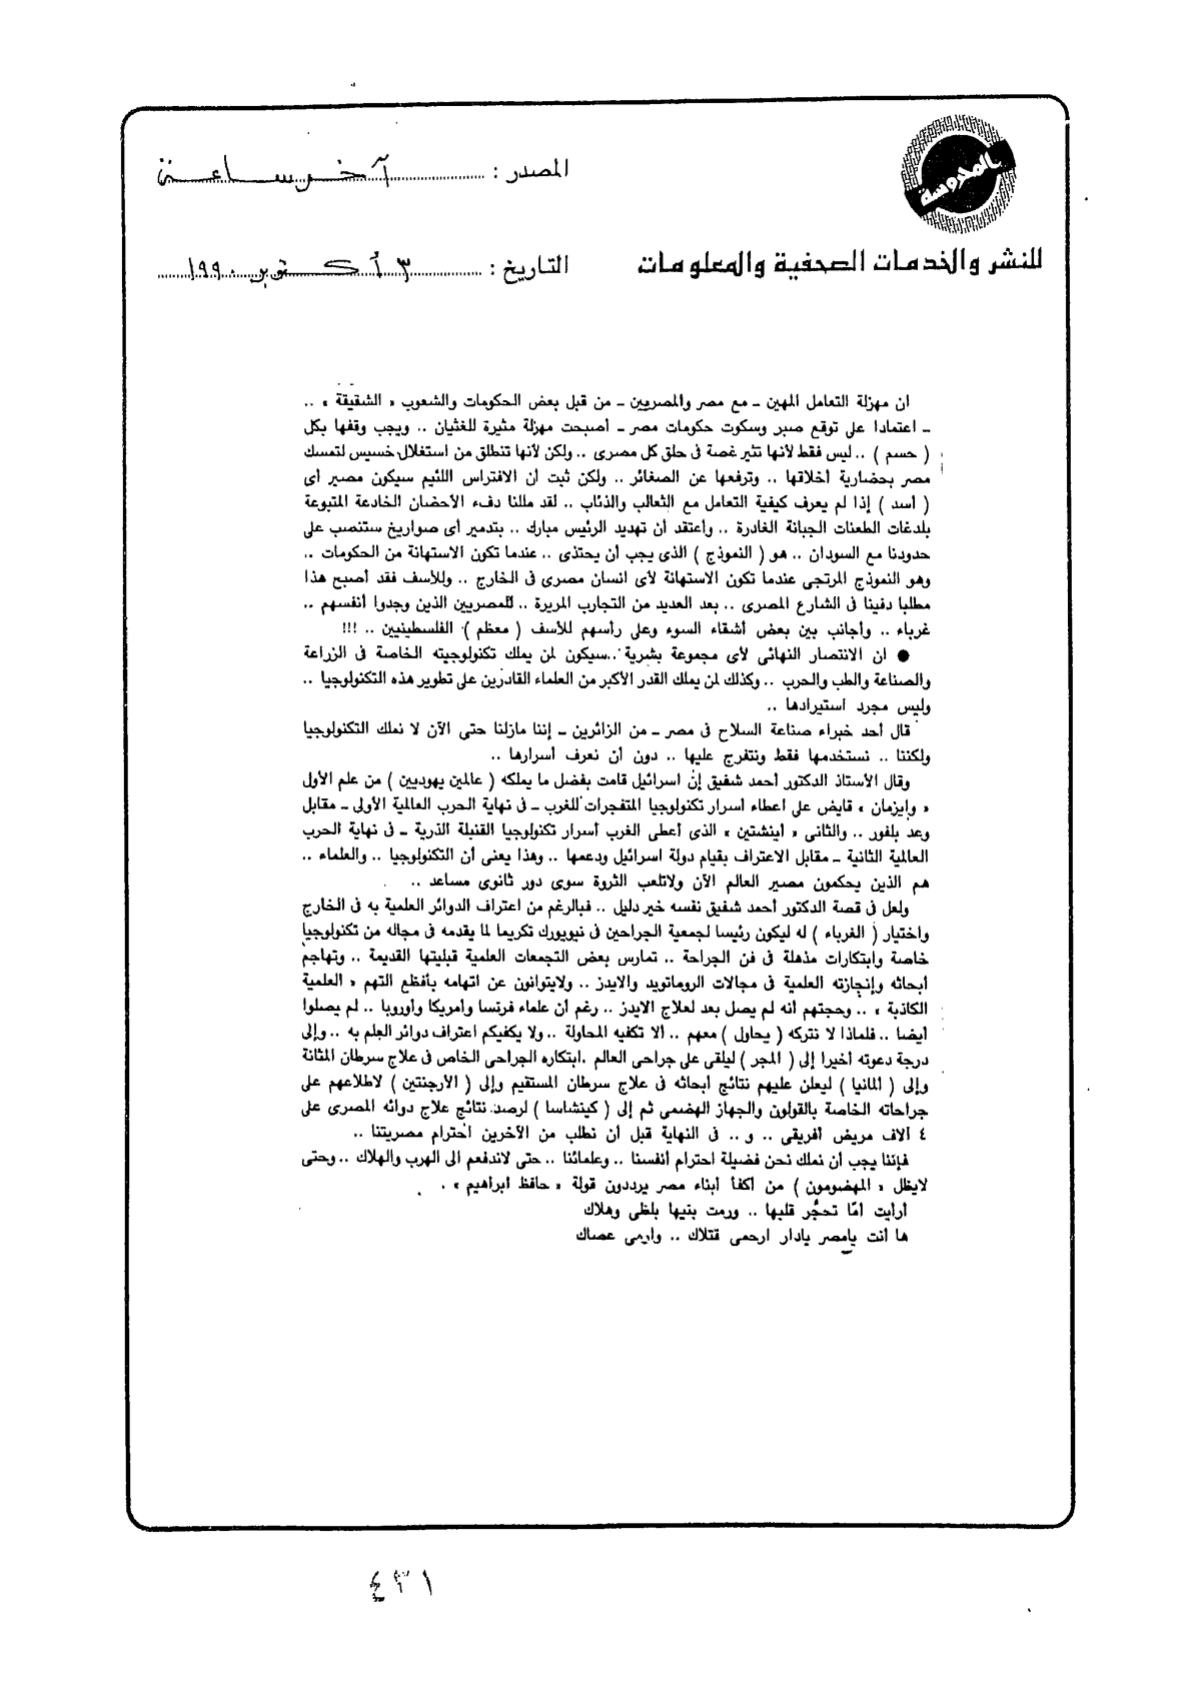 بالمحروسة
المصدر : آخر ساعة
للنشر والخدمات الصحفية والمعلومات
التاريخ : ٣ أكتوبر ١٩٩٠
ان مهزلة التعامل المهين ـ مع مصر والمصريين ـ من قبل بعض الحكومات والشعوب « الشقيقة » ..
ـ اعتمادا على توقع صبر وسكوت حكومات مصر ـ أصبحت مهزلة مثيرة للغثيان .. ويجب وقفها بكل
( حسم ) .. ليس فقط لأنها تثير غصة فى حلق كل مصرى .. ولكن لأنها تنطلق من استغلال خسيس لتمسك
مصر بحضارية أخلاقها .. وترفعها عن الصغائر .. ولكن ثبت أن الافتراس اللئيم سيكون مصير أى
( أسد ) إذا لم يعرف كيفية التعامل مع الثعالب والذئاب .. لقد مللنا دفء الأحضان الخادعة المتبوعة
بلدغات الطعنات الجبانة الغادرة .. وأعتقد أن تهديد الرئيس مبارك .. بتدمير أى صواريخ ستنصب على
حدودنا مع السودان .. هو ( النموذج ) الذى يجب أن يحتذى .. عندما تكون الاستهانة من الحكومات ..
وهو النموذج المرتجى عندما تكون الاستهانة لأى انسان مصرى فى الخارج .. وللأسف فقد أصبح هذا
مطلبا دفينا فى الشارع المصرى .. بعد العديد من التجارب المريرة .. للمصريين الذين وجدوا أنفسهم ..
غرباء .. وأجانب بين بعض أشقاء السوء وعلى رأسهم للأسف ( معظم ) الفلسطينيين .. !!!
● ان الانتصار النهائى لأى مجموعة بشرية .. سيكون لمن يملك تكنولوجيته الخاصة فى الزراعة
والصناعة والطب والحرب .. وكذلك لمن يملك القدر الأكبر من العلماء القادرين على تطوير هذه التكنولوجيا ..
وليس مجرد استيرادها ..
قال أحد خبراء صناعة السلاح فى مصر ـ من الزائرين ـ إننا مازلنا حتى الآن لا نملك التكنولوجيا
ولكننا .. نستخدمها فقط ونتفرج عليها .. دون أن نعرف أسرارها ..
وقال الأستاذ الدكتور أحمد شفيق إن اسرائيل قامت بفضل ما يملكه ( عالمين يهوديين ) من علم الأول
« وايزمان » قايض على اعطاء اسرار تكنولوجيا المتفجرات للغرب ـ فى نهاية الحرب العالمية الأولى ـ مقابل
وعد بلفور .. والثانى « أينشتين » الذى أعطى الغرب أسرار تكنولوجيا القنبلة الذرية ـ فى نهاية الحرب
العالمية الثانية ـ مقابل الاعتراف بقيام دولة اسرائيل ودعمها .. وهذا يعنى أن التكنولوجيا .. والعلماء ..
هم الذين يحكمون مصير العالم الآن ولاتلعب الثروة سوى دور ثانوى مساعد ..
ولعل فى قصة الدكتور أحمد شفيق نفسه خير دليل .. فبالرغم من اعتراف الدوائر العلمية به فى الخارج
واختيار ( الغرباء ) له ليكون رئيسا لجمعية الجراحين فى نيويورك تكريما لما يقدمه فى مجاله من تكنولوجيا
خاصة وابتكارات مذهلة فى فن الجراحة .. تمارس بعض التجمعات العلمية قبليتها القديمة .. وتهاجم
أبحاثه وإنجازته العلمية فى مجالات الروماتويد والايدز .. ولايتوانون عن اتهامه بأفظع التهم « العلمية
الكاذبة » .. وحجتهم أنه لم يصل بعد لعلاج الايدز .. رغم أن علماء فرنسا وأمريكا وأوروبا .. لم يصلوا
أيضا .. فلماذا لا نتركه ( يحاول ) معهم .. ألا تكفيه المحاولة .. ولا يكفيكم اعتراف دوائر العلم به .. وإلى
درجة دعوته أخيرا إلى ( المجر ) ليلقى على جراحى العالم . ابتكاره الجراحى الخاص فى علاج سرطان المثانة
وإلى ( المانيا ) ليعلن عليهم نتائج أبحاثه فى علاج سرطان المستقيم وإلى ( الأرجنتين ) لاطلاعهم على
جراحاته الخاصة بالقولون والجهاز الهضمى ثم إلى ( كينشاسا ) لرصد نتائج علاج دوائه المصرى على
٤ آلاف مريض أفريقى .. و .. فى النهاية قبل أن نطلب من الآخرين احترام مصريتنا ..
فإننا يجب أن نملك نحن فضيلة احترام أنفسنا .. وعلمائنا .. حتى لاندفعم الى الهرب والهلاك .. وحتى
لايظل « المهضومون ) من أكفأ أبناء مصر يرددون قولة « حافظ ابراهيم » .
أرأيت أمّا تحجّر قلبها .. ورمت بنيها بلظى وهلاك
ها أنت يامصر يادار ارحمى قتلاك .. وارمى عصاك
٤٣١